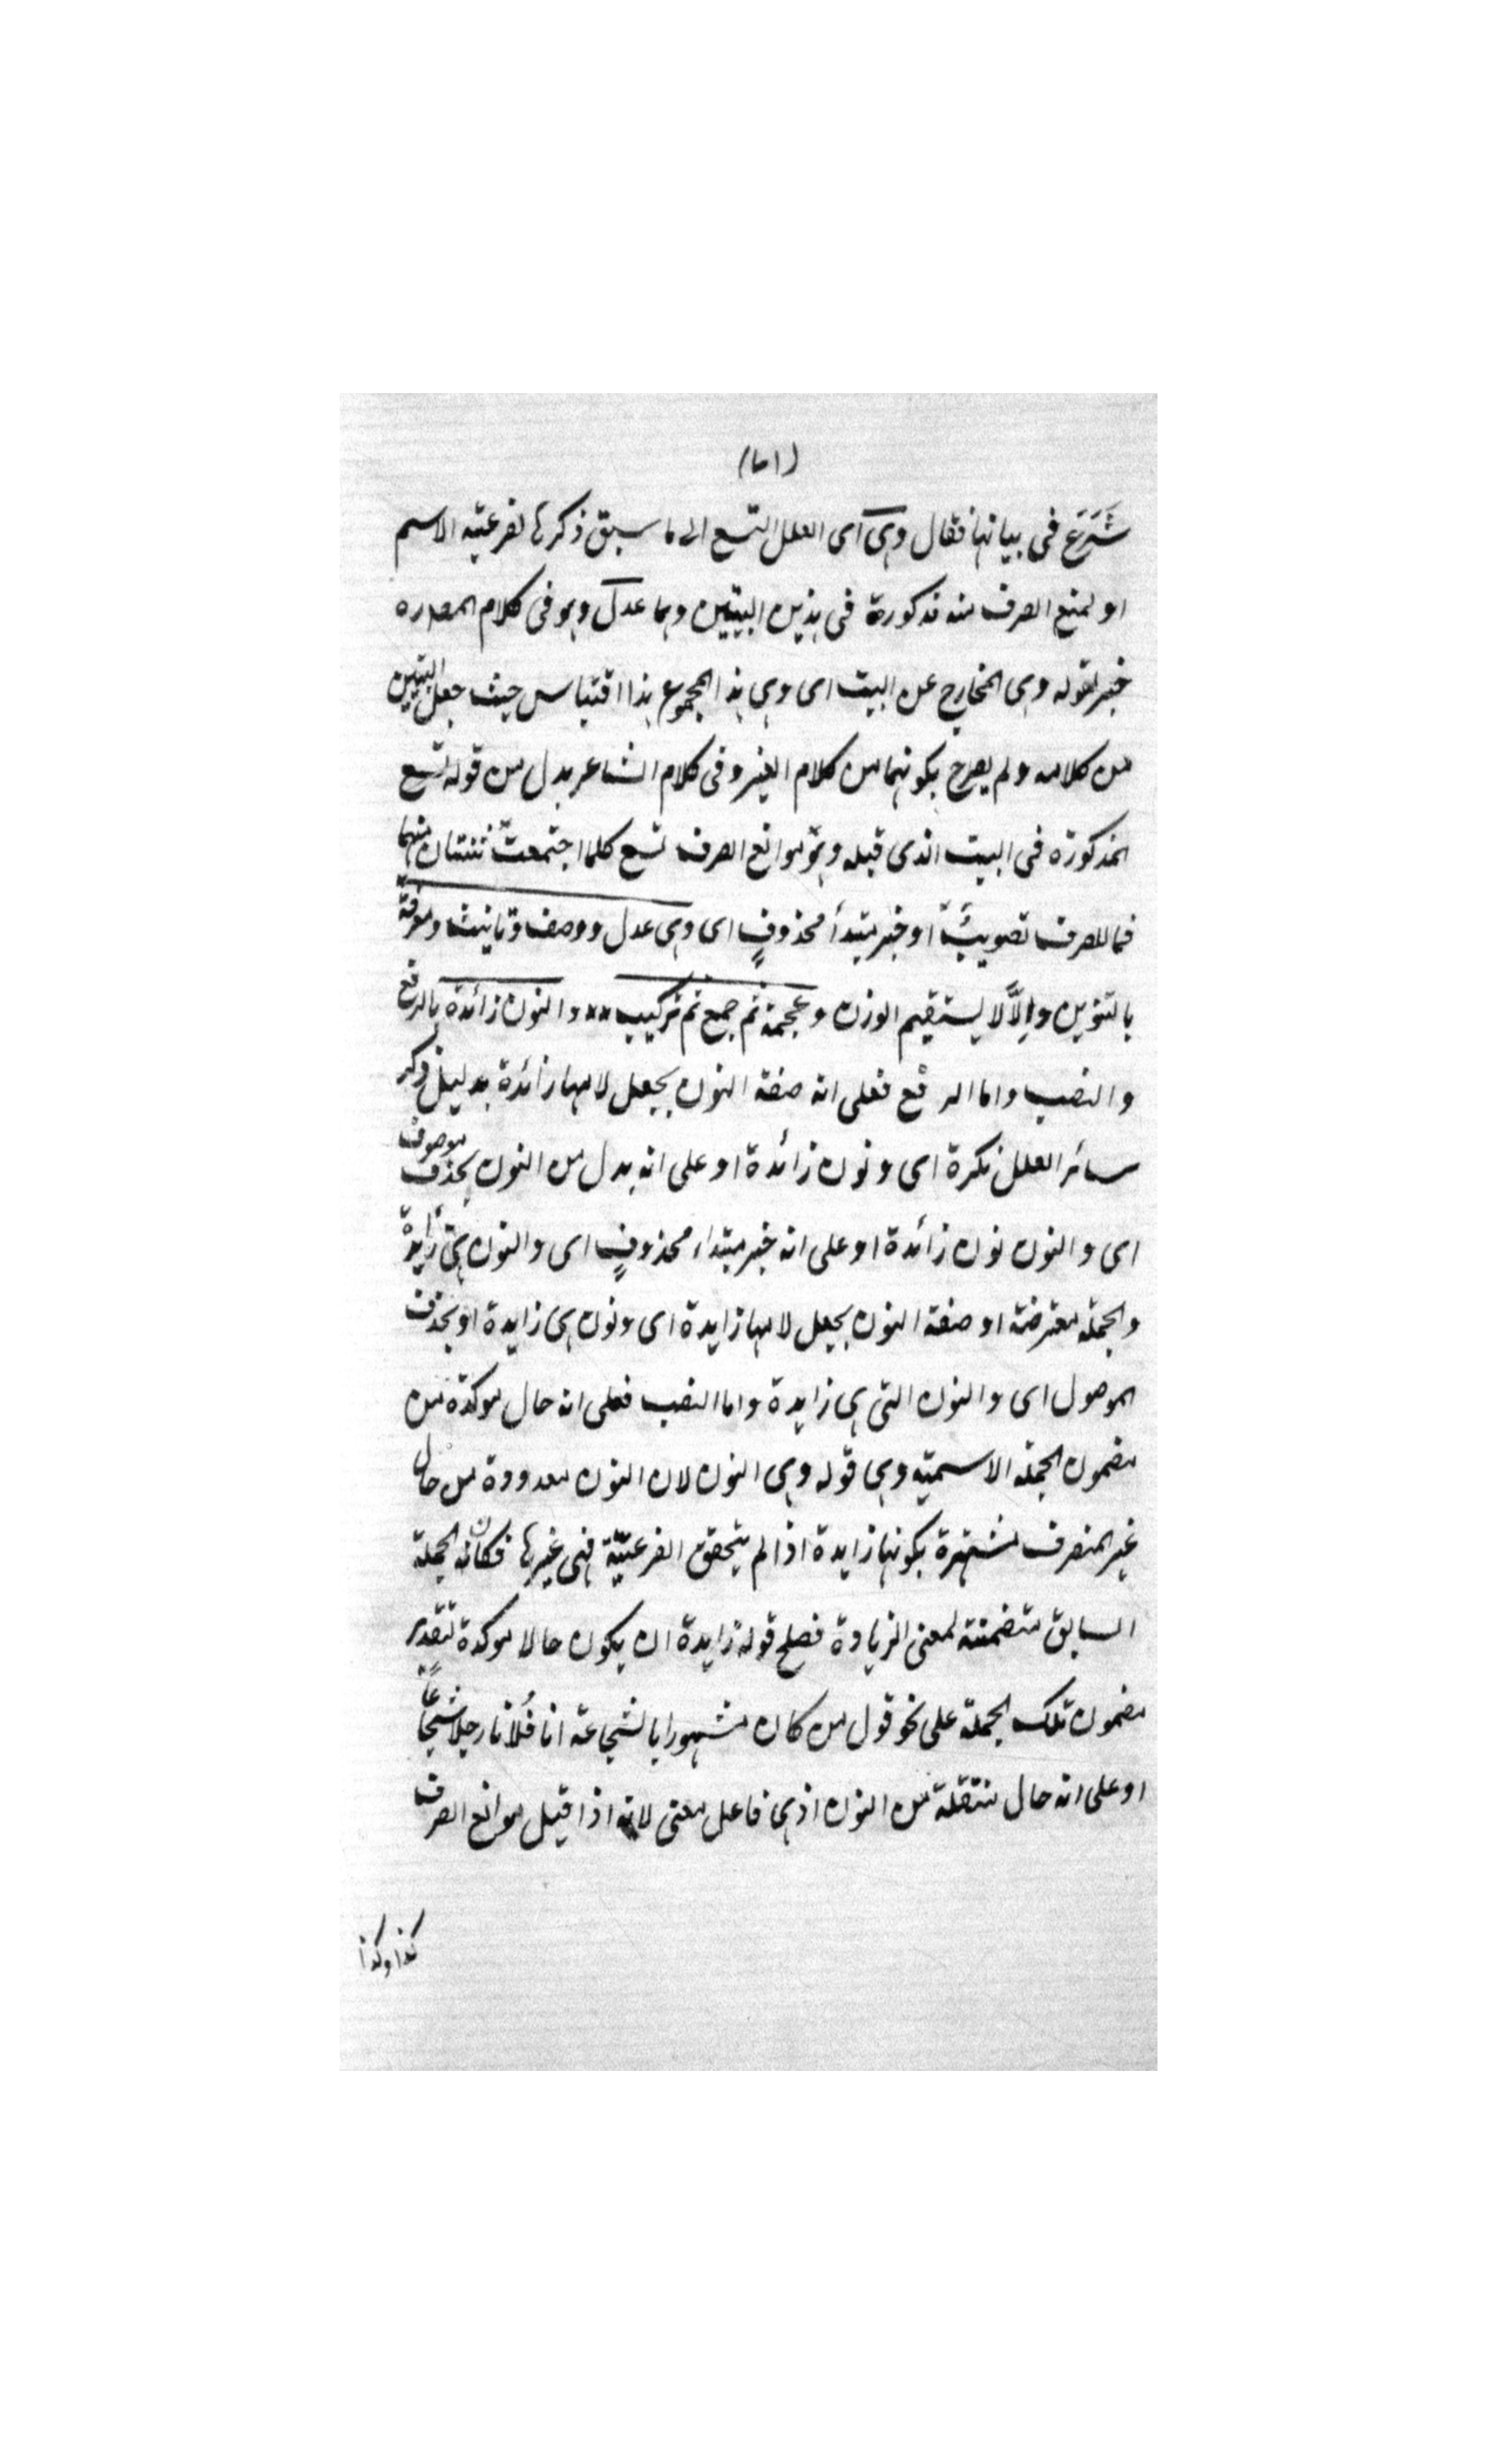 (١٥١)
شَرَعَ فى بيانها فقال وهى اى العلل التسع الى ما سبق ذكرها لفرعية الاسم
او لمنع الصرف منه مذكورة فى هذين البيتين وهما عدل وهو فى كلام المصدره
خبر لقوله وهى الخارج عن البيت اى وهى هذا المجموع هذا اقتباس حيث جعل البيتين
من كلامه ولم يصرح بكونهما من كلام الغير وفى كلام الشاعر بدل من قوله تسع
المذكورة فى البيت الذى قبله وهو موانع الصرف تسع كلما اجتمعت ثنتان منهما
فما للصرف تصويبٌ او خبر مبتدأ محذوفٍ اى وهى عدل ووصف وتانيث ومعرفة
بالتنوين وإلّا لا يستقيم الوزن وعجمة ثم جمع ثم تركيب ** والنون زائدة بالرفع
والنصب واما الرفع فعلى انه صفة النون بجعل لامها زائدة بدليل ذكر
سائر العلل نكرة اى ونون زائدة او على انه بدل من النون بحذف موصوف
اى والنون نون زائدة او على انه خبر مبتداء محذوفٍ اى والنون هى زايدة
والجملة معترضة او صفة النون بجعل لامها زايدة اى ونون هى زايدة او بحذف
الموصول اى والنون التى هى زايدة واما النصب فعلى انه حال موكدة من
مضمون الجملة الاسمية وهى قوله وهى النون لان النون معدودة من حال
غير المنصرف مشتهرة بكونها زايدة اذا لم يتحقق الفرعيّة فى غيرها فكان الجملة
السابق متضمنة لمعنى الزيادة فصلح قوله زايدة ان يكون حالا موكدة لتقدير
مضمون تلك الجملة على نحو قول من كان مشهورا بالشجاعة انا فُلانا رجلا شجاعًا
او على انه حال منتقلة من النون اذ هى فاعل معنى لانه اذا قيل موانع الصرف
كذا وكذا